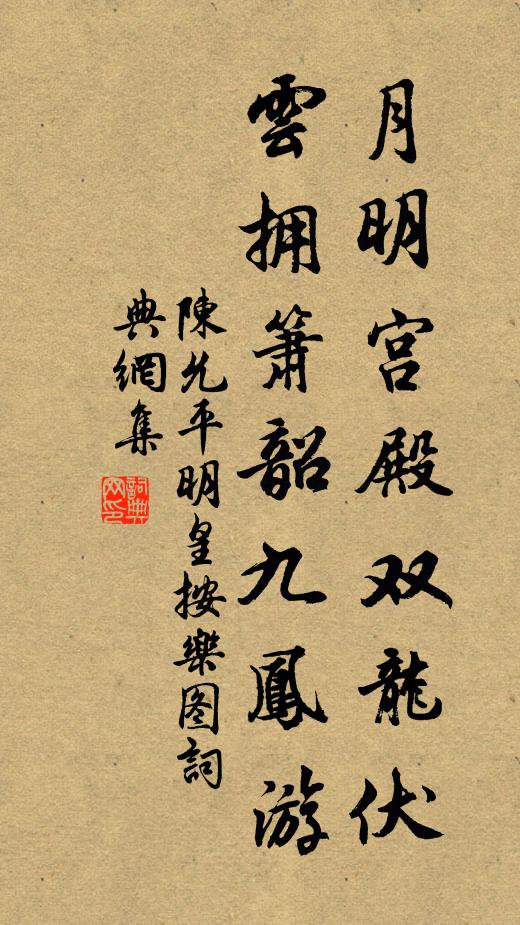 月明宫殿双龍伏
雲拥箫韶九鳳游
陳允平明皇按樂图詞
典網集
詞典网印